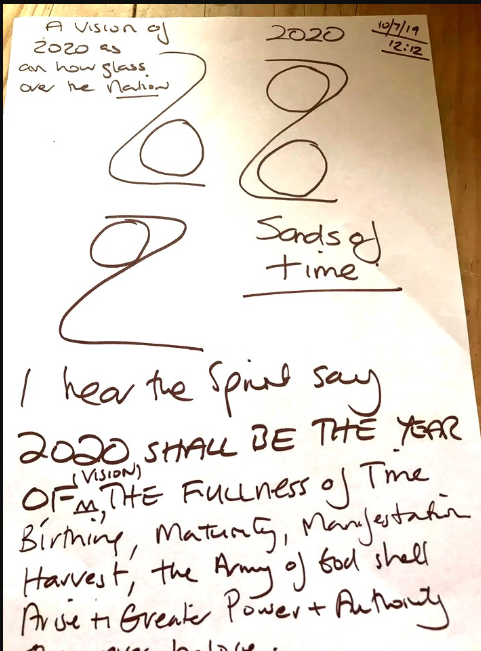 A Vision of
2020 as
an hourglass
over the Nation
2020
10/7/19
12:12
Sands of
time
I hear the Spirit say
2020 SHALL BE THE YEAR
OF (VISION), THE FULLNESS of Time
Birthing, Maturity, Manifestation
Harvest, the Army of God shall
Arise in Greater Power + Authority
before.